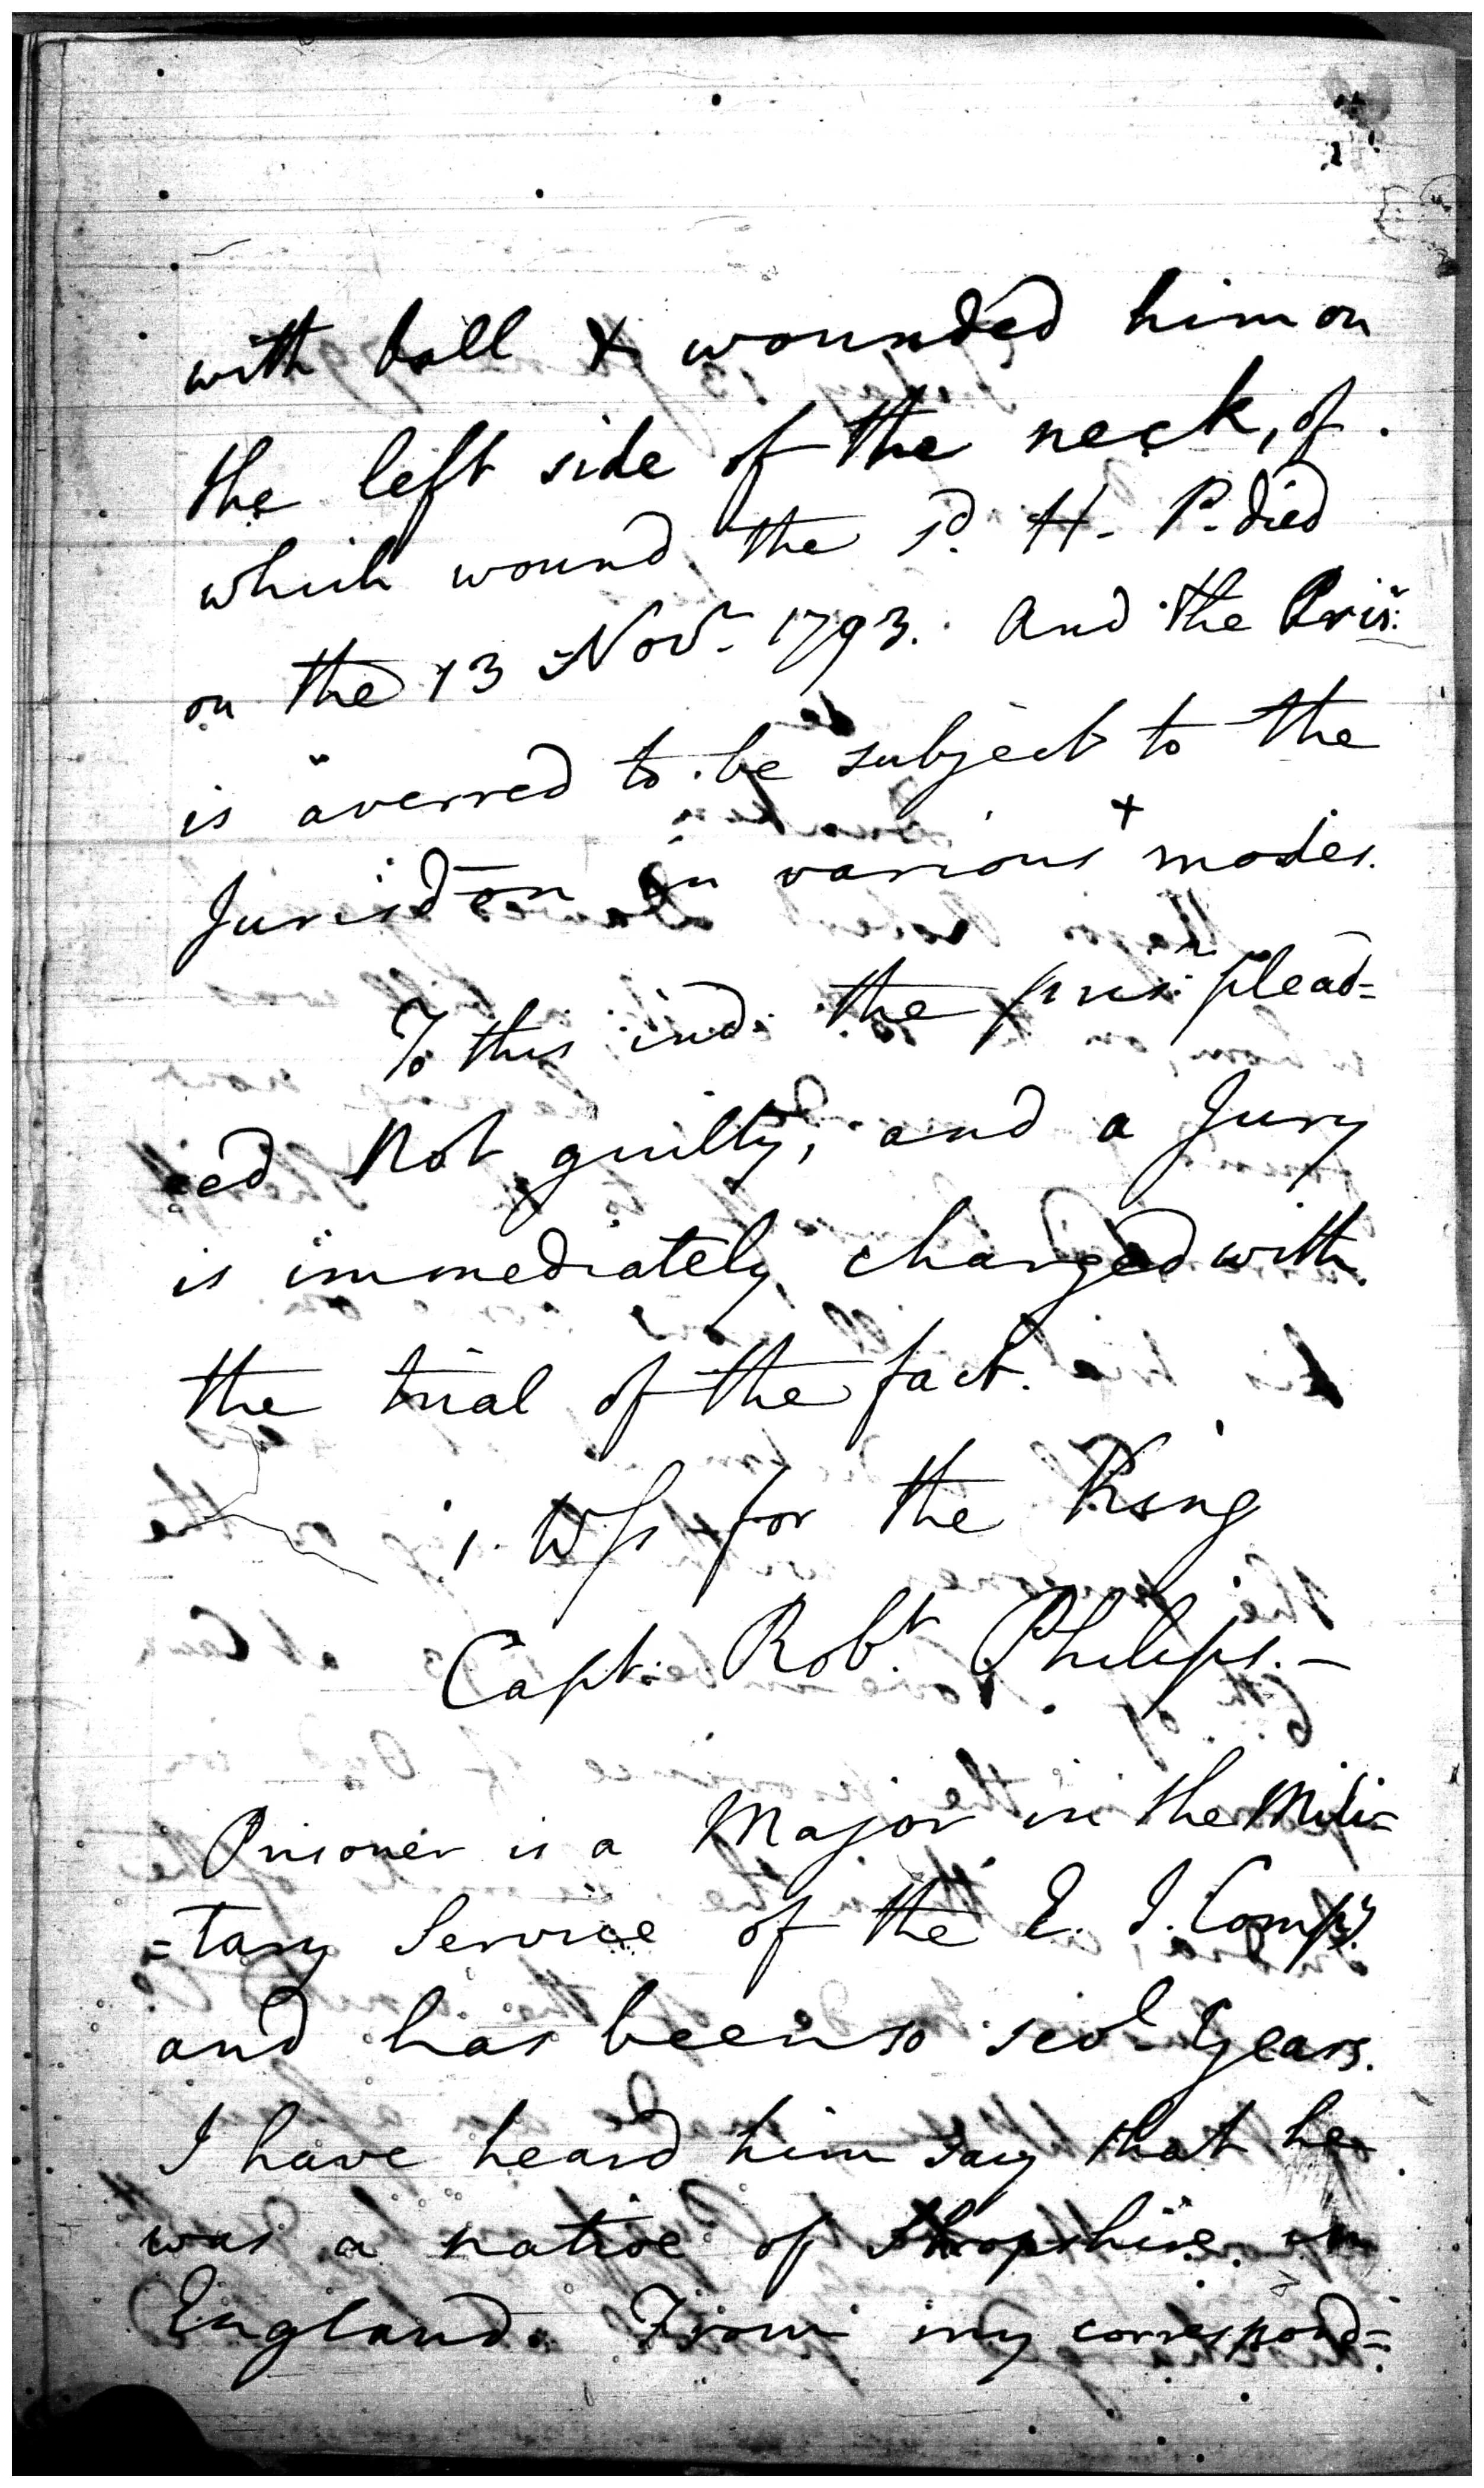 with ball & wounded him on
the left side of the neck, of
which wound the sd. H. P. died
on the 13 Novr. 1793. And the Prisr.
is averred to be subject to the
Jurisdon in various + modes.
To this ind. the prisr. plead=
ed Not guilty, and a Jury
is immediately charged with
the trial of the fact.
1. Wss for the King
Capt. Robt. Philips.—
Prisoner is a Major in the Mili=
=tary Service of the E. I. Compy.
and has been so sevl. Years.
I have heard him say that he
was a native of Shropshire in
England. From my correspond=